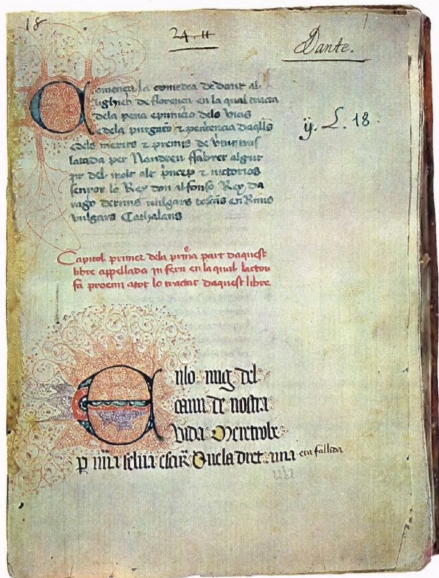 18
24. II
Dante.
ÿ. L. 18.
Comença la comedia de dant al
de florença en la qual tracta
dela pena e punicio dels vicis
e dela purgacio z penitencia daqlls
e dels merits z premis de virtut tras
latada per Nandreu ffabrer algutzir
del molt alt princep z victorios
senyor lo Rey don alfonso Rey da
rago de rims vulgars toscans en Rims
vulgars Cathalans
Capitol primer dela prima part daquest
libre appellada infern en la qual lactor
fa proemi a tot lo tractat daquest libre
Enlo mig del
cami de nostra
vida Me retrobe
p una selva escura la dret via era fallida